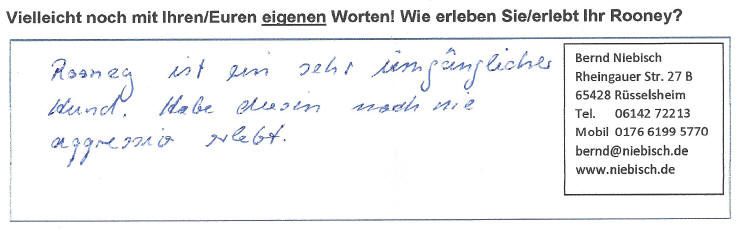 Vielleicht noch mit Ihren/Euren eigenen Worten! Wie erleben Sie/erlebt Ihr Rooney?
Rooney ist ein sehr umgänglicher
Hund. Habe diesen noch nie
aggressiv erlebt.
Bernd Niebisch
Rheingauer Str. 27 B
65428 Rüsselsheim
Tel. 06142 72213
Mobil 0176 6199 5770
bernd@niebisch.de
www.niebisch.de